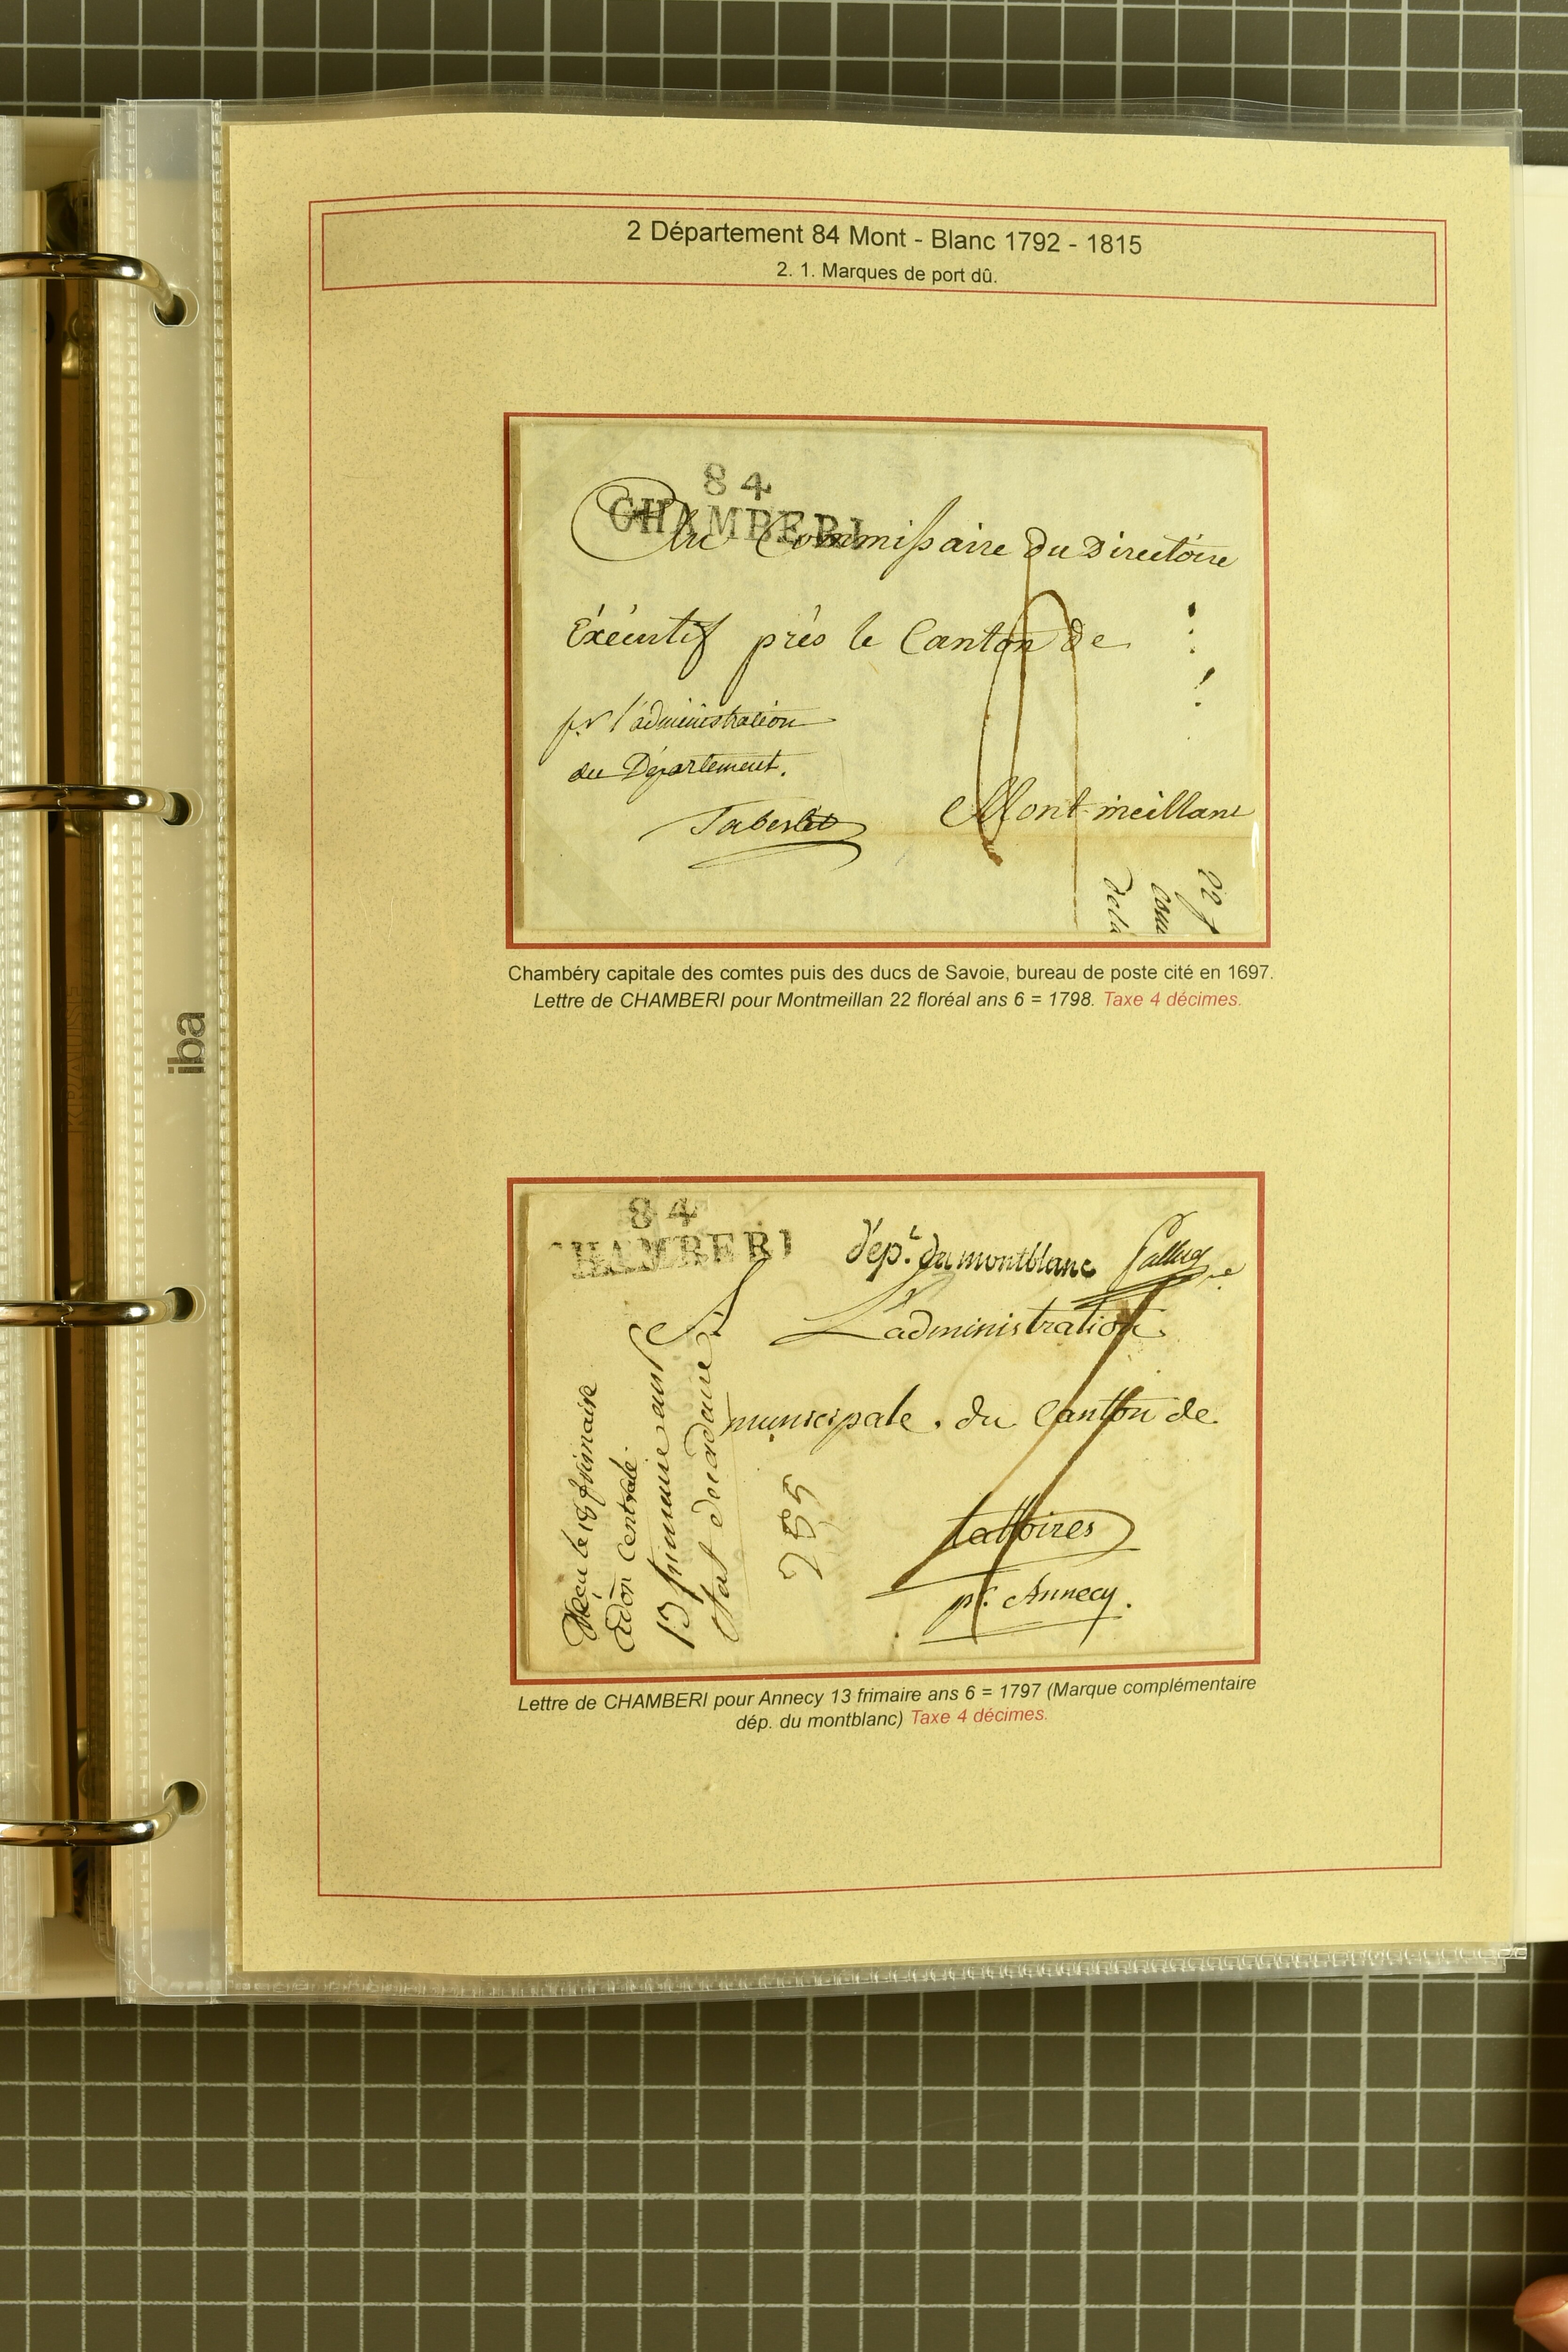 2 Département 84 Mont - Blanc 1792 - 1815
2. 1. Marques de port dû.
84
CHAMBERI
Au Commissaire du Directoire
Éxécutif près le Canton de
pr l'administration
du Département.
Montmeillant
Chambéry capitale des comtes puis des ducs de Savoie, bureau de poste cité en 1697.
Lettre de CHAMBERI pour Montmeillan 22 floréal ans 6 = 1798. Taxe 4 décimes.
84
CHAMBERI
dépt. du montblanc
A L'administration
municipale. du Canton de
talloires
pr. Annecy.
Reçu le 18 frimaire
adon Centrale
13 frimaire an 6
255
Lettre de CHAMBERI pour Annecy 13 frimaire ans 6 = 1797 (Marque complémentaire
dép. du montblanc) Taxe 4 décimes.
iba